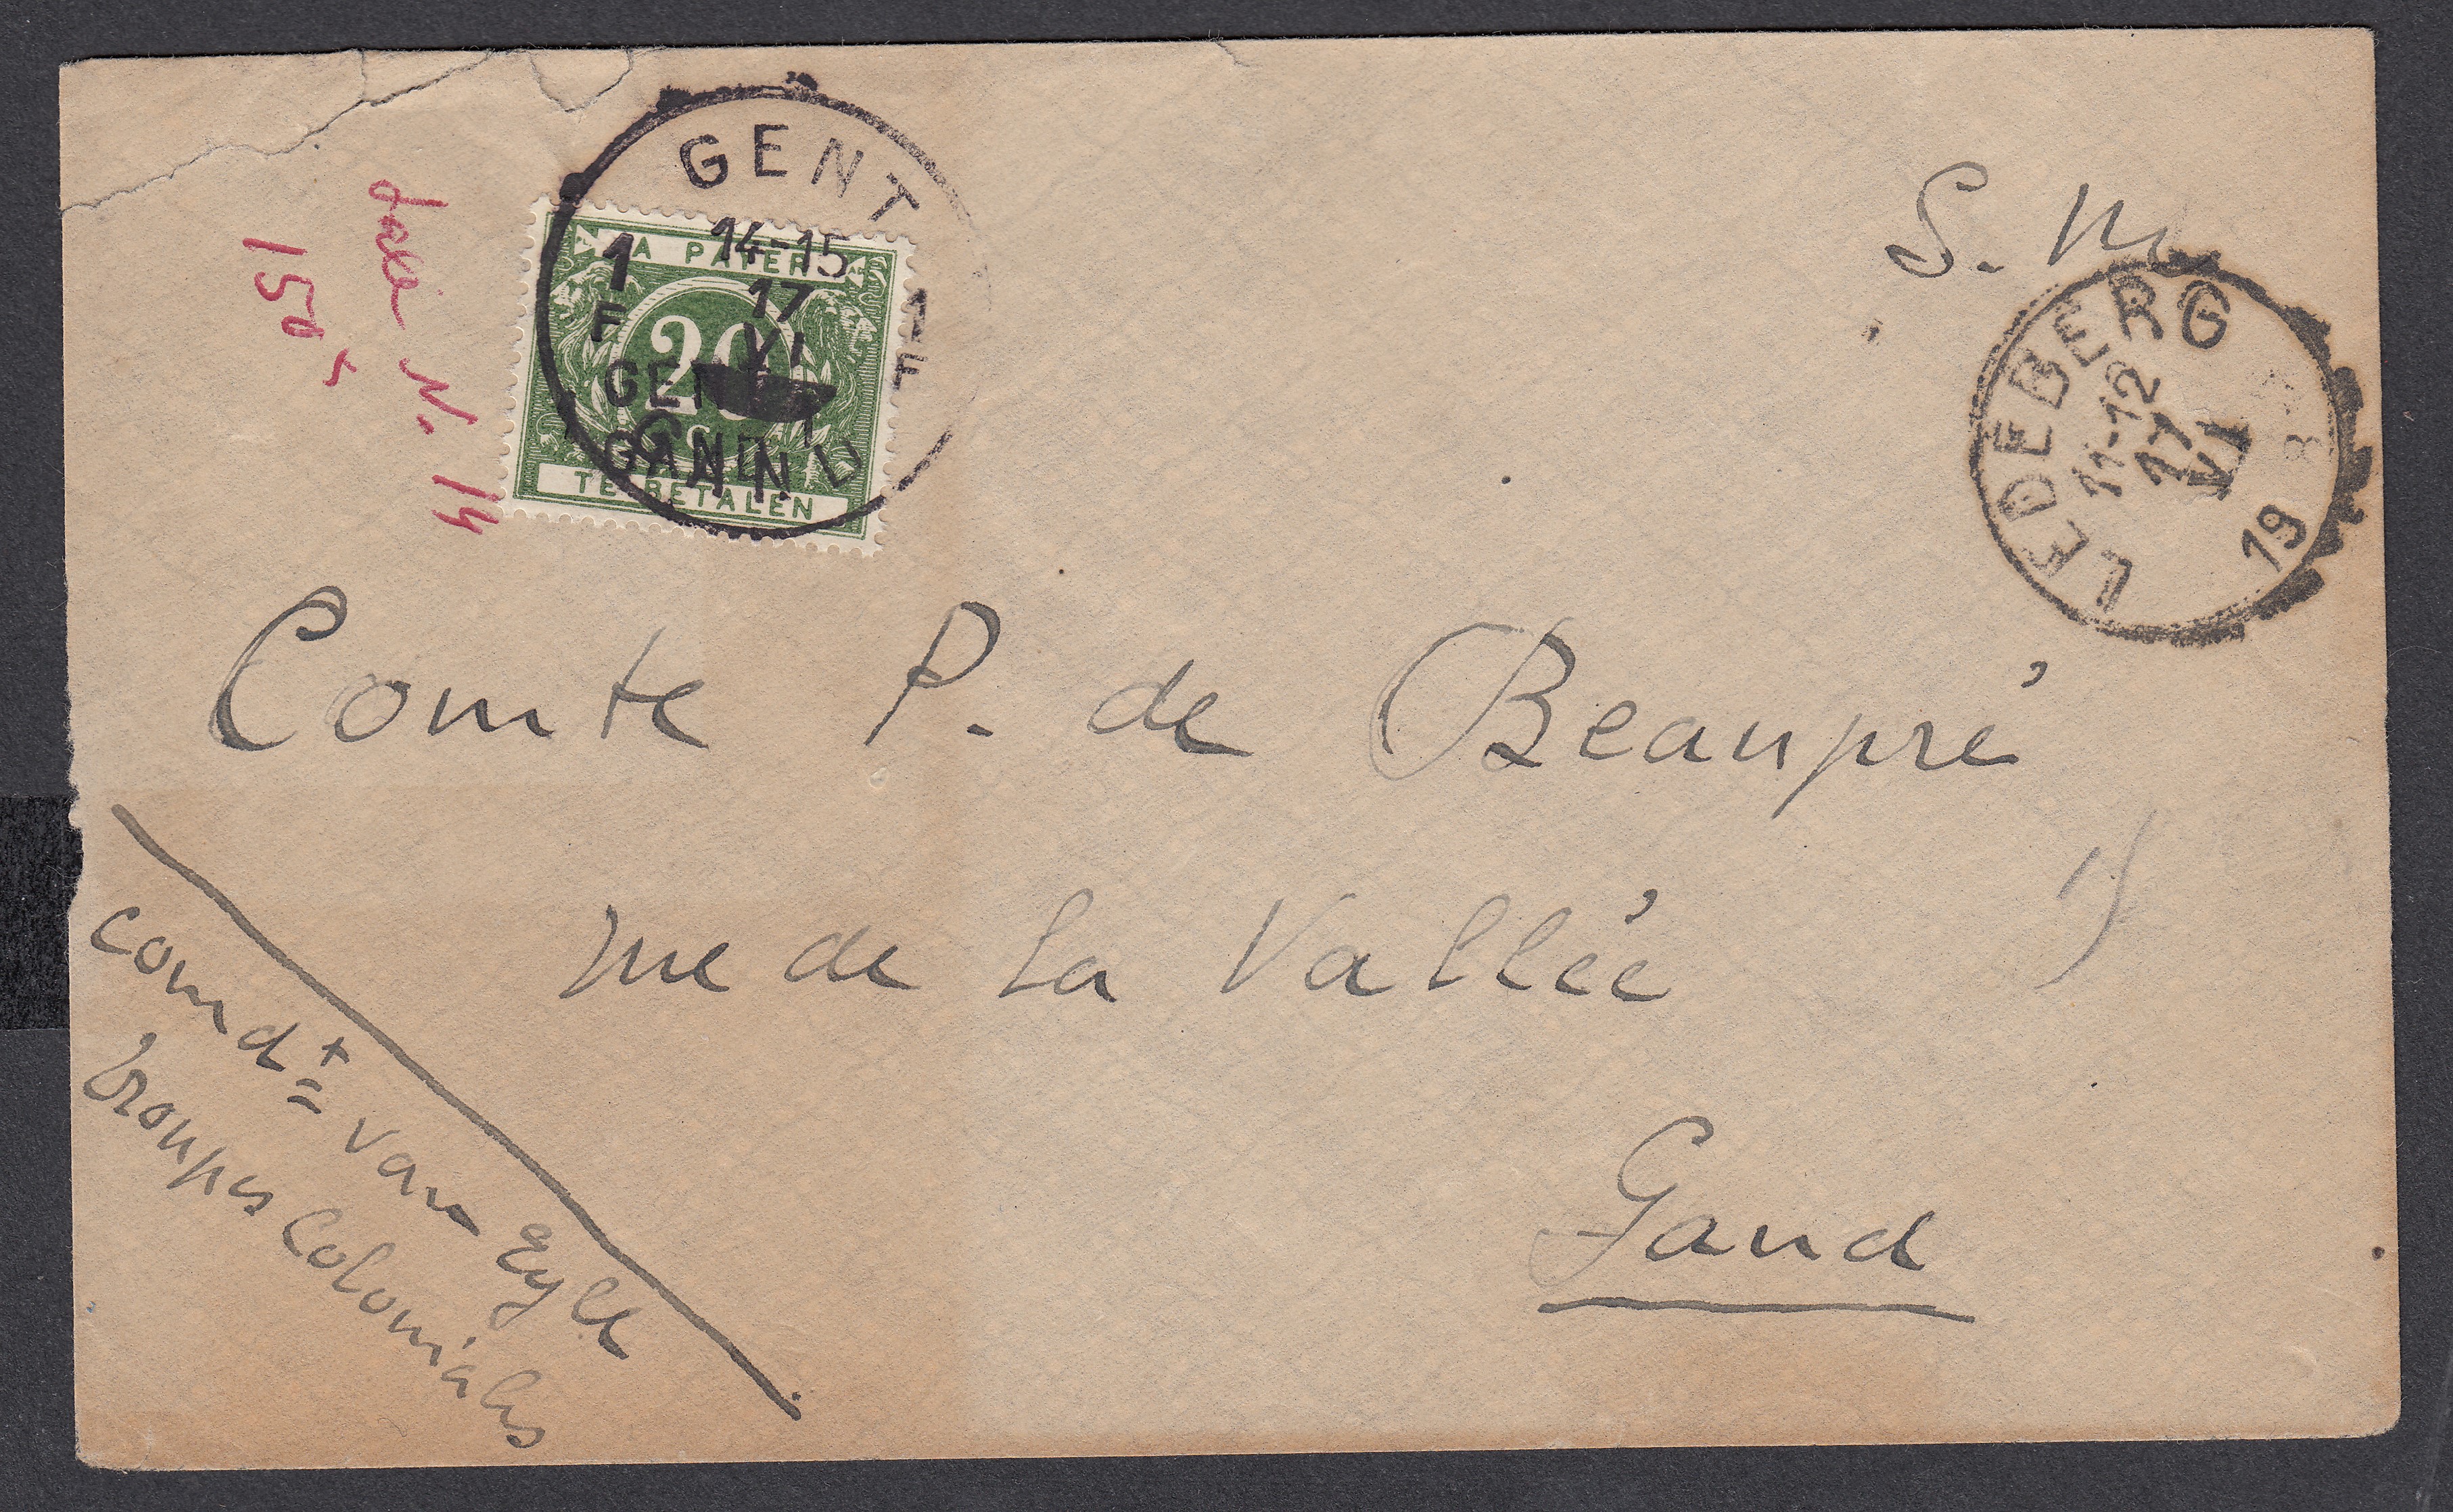 S. M.
GENT
14-15
17
VI
1
F
1
F
A PAYER
20
TE BETALEN
GENT
GAND
GAND
LEDEBERG
11-12
17
VI
19
taxe N. 14
150
Comte P. de Beaupré
rue de la Vallée
Gand
comdt van Eyll
troupes Coloniales